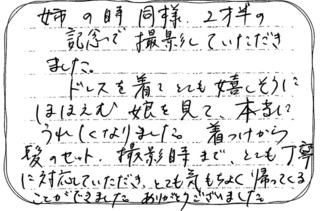 姉の時同様、2才半の
記念で撮影していただき
ました。
ドレスを着てとても嬉しそうに
ほほえむ娘を見て、本当に
うれしくなりました。着つけから
髪のセット、撮影時まで、とても丁寧
に対応していただき、とても気もちよく帰ってくる
ことができました。ありがとうございました。